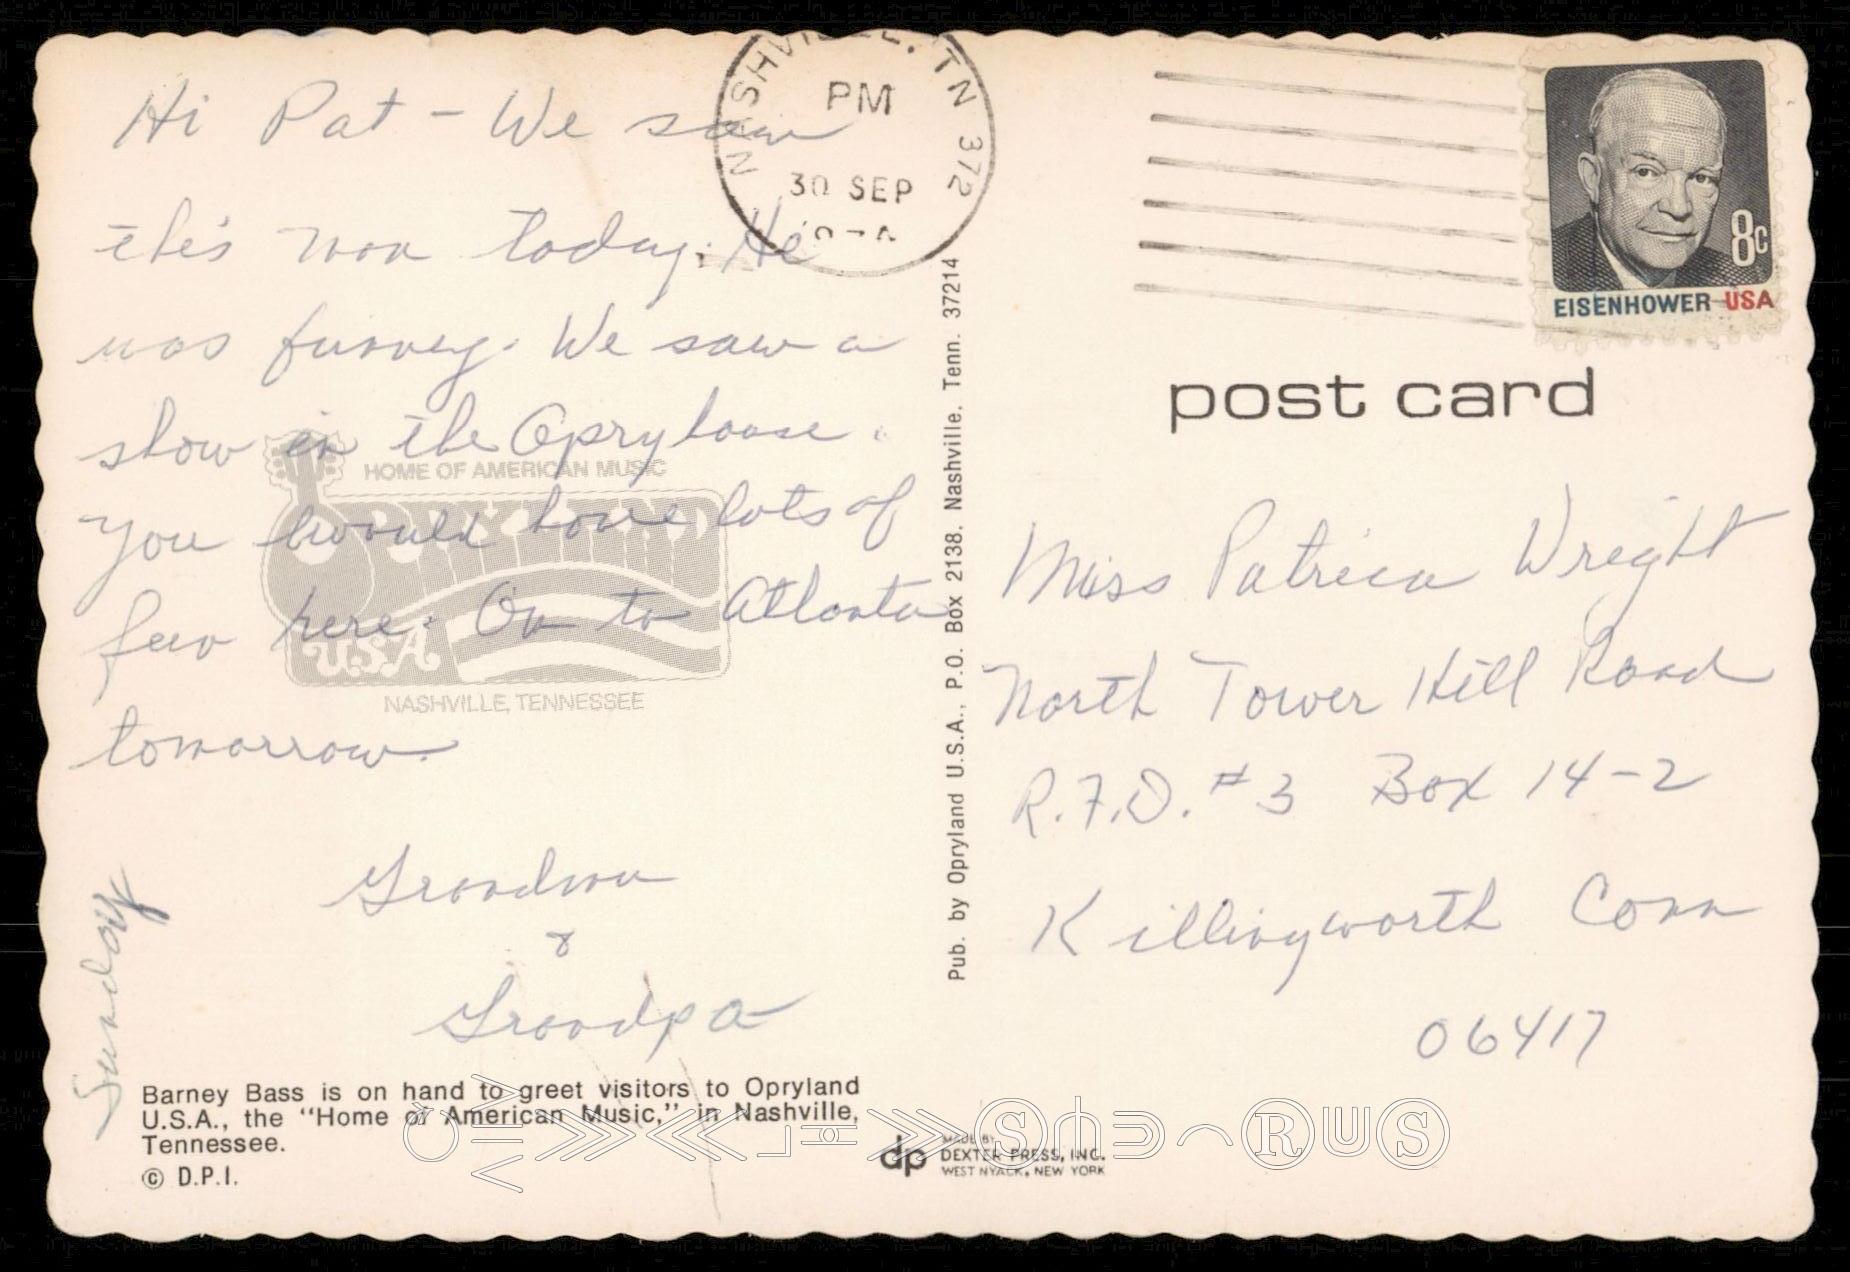 Hi Pat - We saw
this man today. He
was funny. We saw a
show in the Opryhouse.
You would have lots of
fun here. On to Atlanta
tomorrow.
Grandma
&
Grandpa
Sunday
HOME OF AMERICAN MUSIC
OPRYLAND
U.S.A.
NASHVILLE, TENNESSEE
Barney Bass is on hand to greet visitors to Opryland
U.S.A., the "Home of American Music," in Nashville,
Tennessee.
© D.P.I.
Pub. by Opryland U.S.A., P.O. Box 2138. Nashville. Tenn. 37214
dp
MADE BY
DEXTER PRESS, INC.
WEST NYACK, NEW YORK
NASHVILLE, TN 372
PM
30 SEP
8c
EISENHOWER USA
post card
Miss Patricia Wright
North Tower Hill Road
R.F.D. #3 Box 14-2
Killingworth Conn
06417